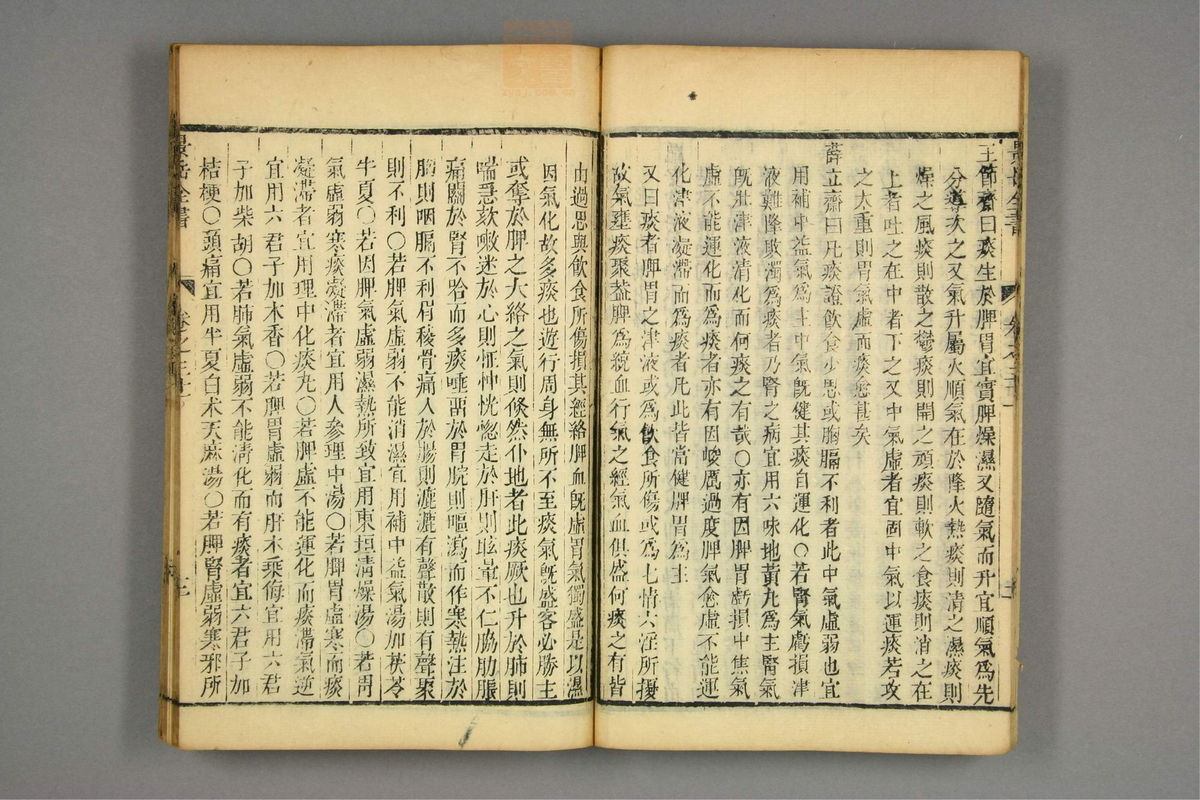 王節齋曰痰生於脾胃宜實脾燥濕又隨氣而升宜順氣為先
分導次之又氣升屬火順氣在於降火熱痰則清之濕痰則
燥之風痰則散之鬱痰則開之頑痰則軟之食痰則消之在
上者吐之在中者下之又中氣虛者宜固中氣以運痰若攻
之太重則胃氣虛而痰愈甚矣
薛立齋曰凡痰證飲食少思或胸膈不利者此中氣虛弱也宜
用補中益氣為主中氣旣健其痰自運化○若腎氣虧損津
液難降敗濁為痰者乃腎之病宜用六味地黃丸為主腎氣
旣壯津液清化而何痰之有哉○亦有因脾胃虧損中焦氣
虛不能運化而為痰者亦有因峻厲過度脾氣愈虛不能運
化津液凝滯而為痰者凡此皆當健脾胃為主
又曰痰者脾胃之津液或為飲食所傷或為七情六淫所擾
故氣壅痰聚蓋脾為統血行氣之經氣血俱盛何痰之有皆
由過思與飲食所傷損其經絡脾血旣虛胃氣獨盛是以濕
因氣化故多痰也遊行周身無所不至痰氣旣盛客必勝主
或奪於脾之大絡之氣則倏然仆地者此痰厥也升於肺則
喘急欬嗽迷於心則怔忡恍惚走於肝則眩暈不仁脇肋脹
痛關於腎不咯而多痰唾畱於胃脘則嘔瀉而作寒熱注於
胸則咽膈不利眉稜骨痛入於腸則漉漉有聲散則有聲聚
則不利○若脾氣虛弱不能消濕宜用補中益氣湯加茯苓
半夏○若因脾氣虛弱濕熱所致宜用東垣清燥湯○若胃
氣虛弱寒痰凝滯者宜用人參理中湯○若脾胃虛寒而痰
凝滯者宜用理中化痰丸○若脾虛不能運化而痰滯氣逆
宜用六君子加木香○若脾胃虛弱而肝木乘侮宜用六君
子加柴胡○若肺氣虛弱不能清化而有痰者宜六君子加
桔梗○頭痛宜用半夏白朮天麻湯○若脾腎虛弱寒邪所
景岳全書
卷之三十一